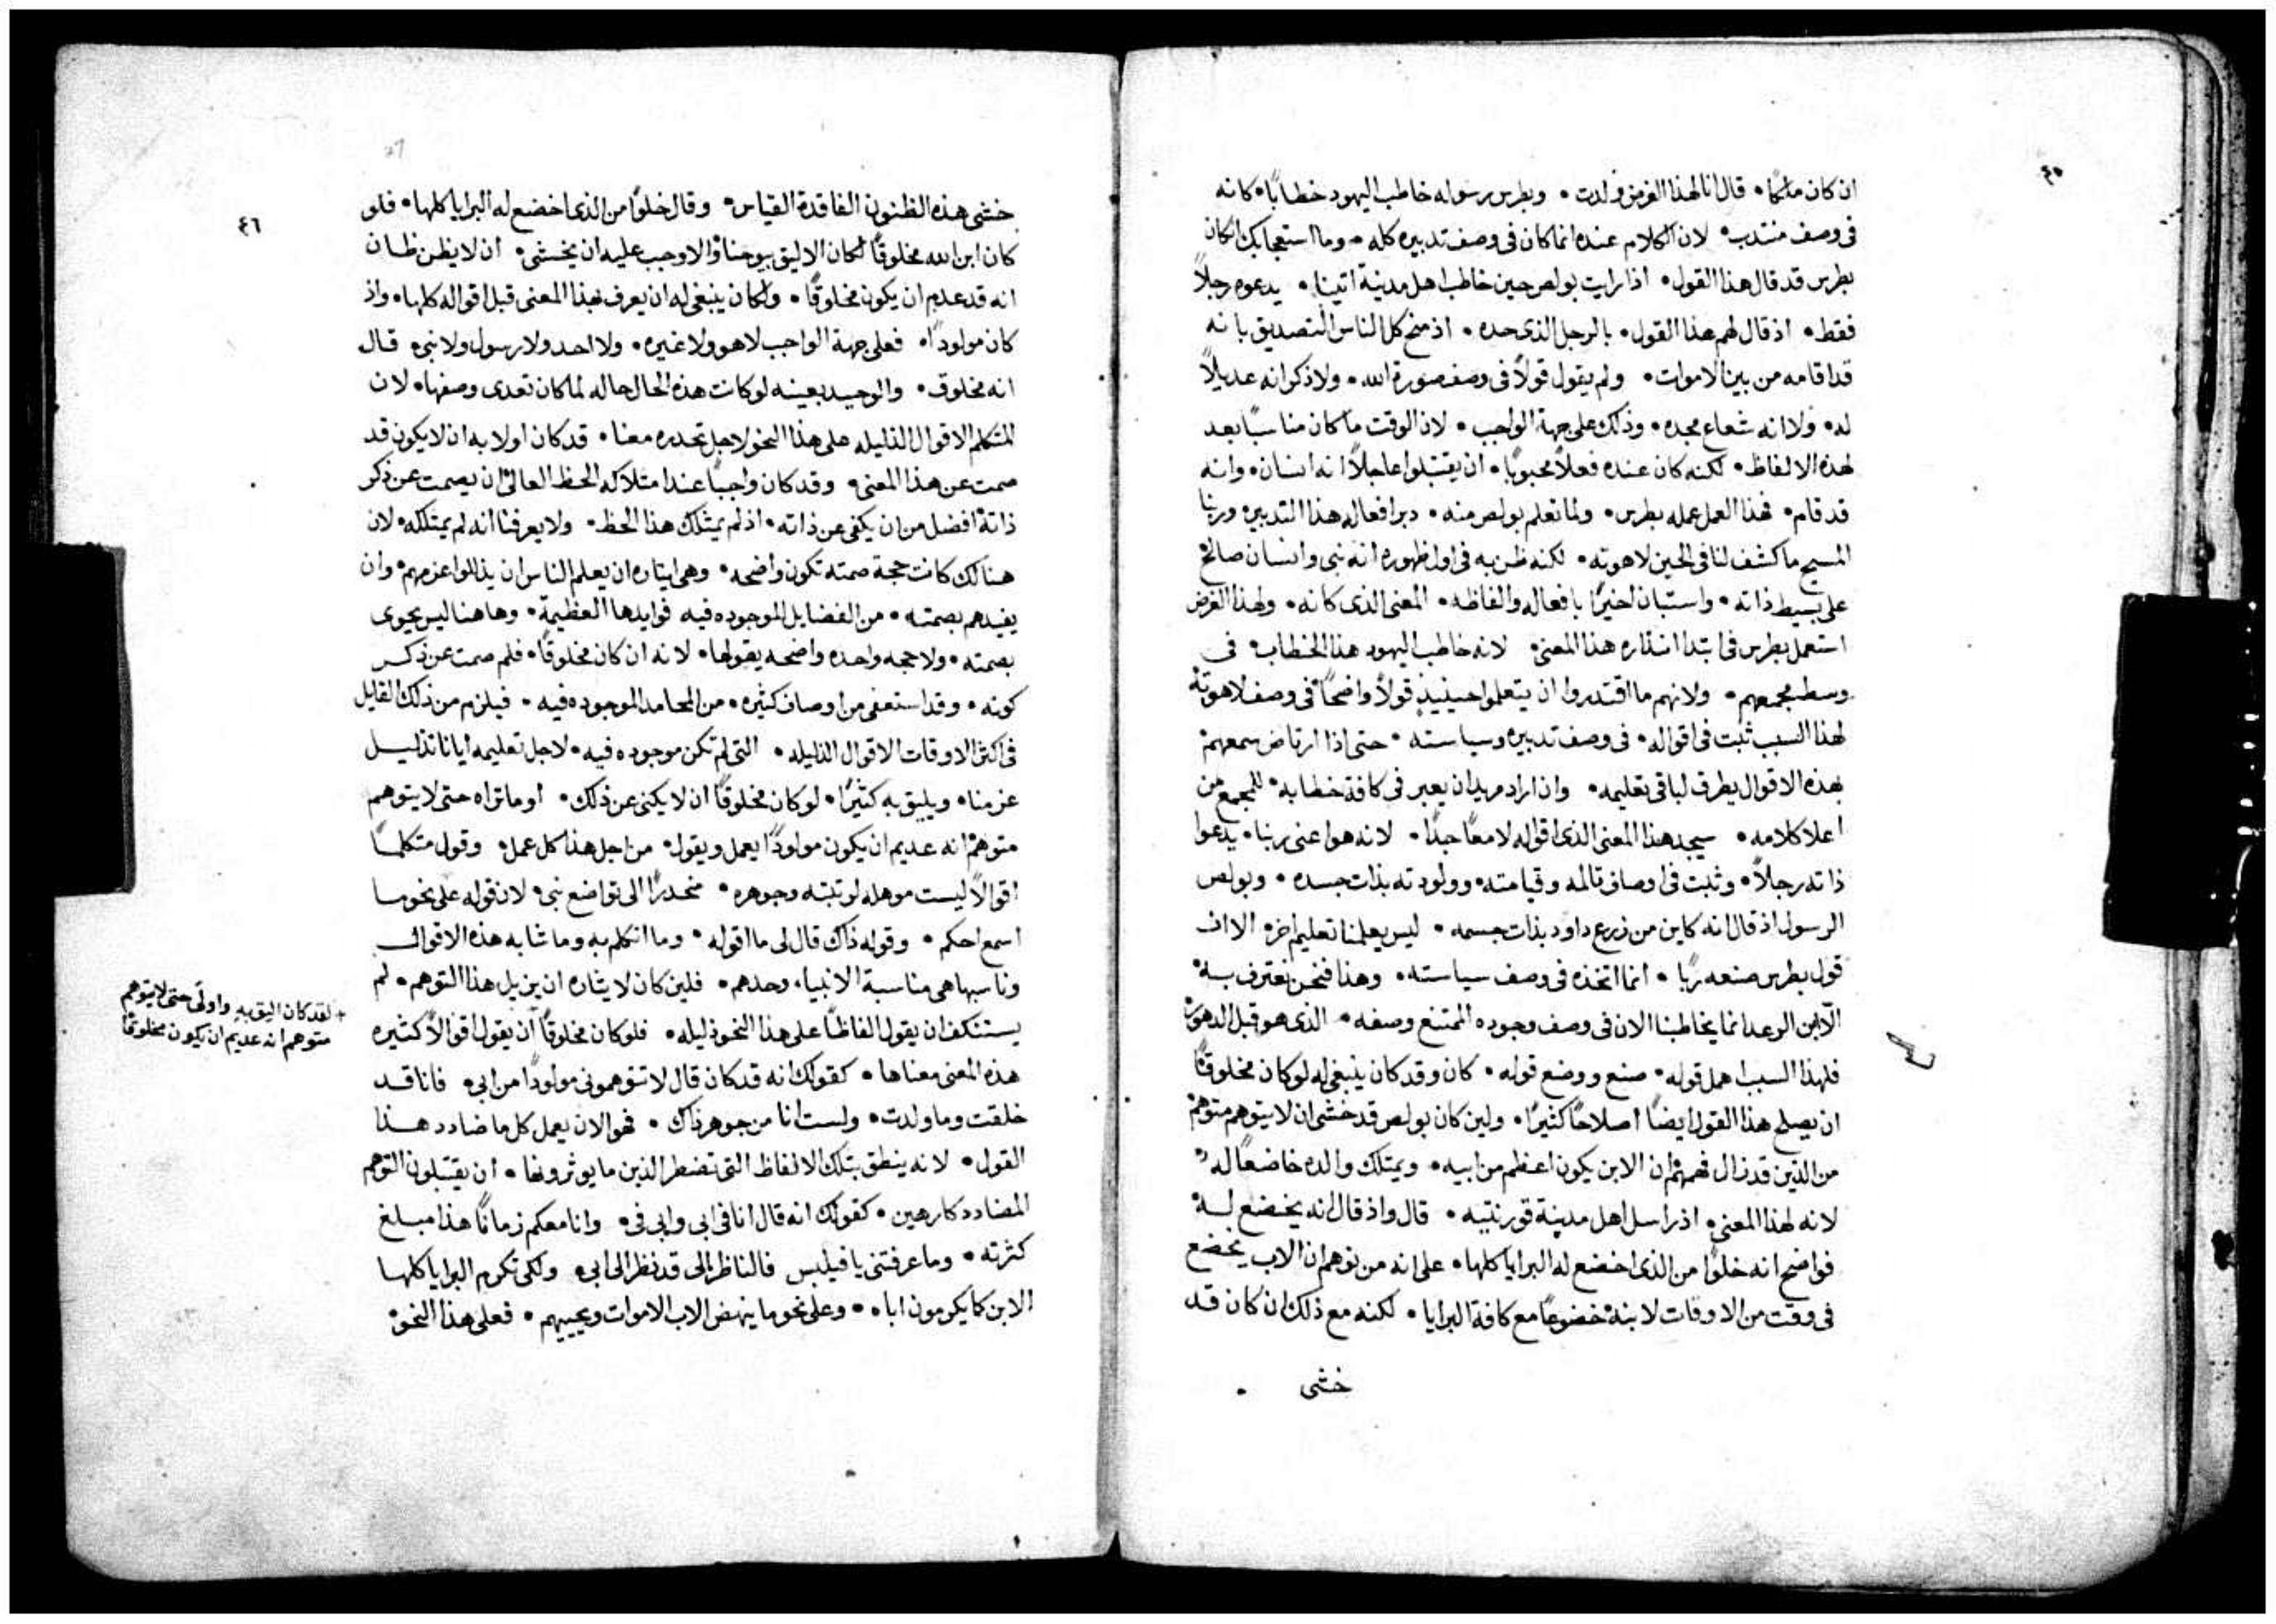 ٤٥
ان كان ملكا • قال انا لهذا الغرض ولدت • وبطرس رسوله خاطب اليهود خطابًا • كانه
فى وصف منتدب • لان الكلام عنده انما كان فى وصف تدبيره كله • وما استعجابك ان كان
بطرس قد قال هذا القول • اذا رايت بولص حين خاطب اهل مدينة اتينا • يدعوه رجلاً
فقط • اذ قال لهم هذا القول • بالرجل الذى حده • اذ منح كل الناس التصديق بانه
قد اقامه من بين الاموات • ولم يقول قولاً فى وصف صورة الله • ولا ذكر انه عديلاً
له • ولا انه شعاع مجده • وذلك على جهة الواجب • لان الوقت ما كان مناسبًا بعد
لهذه الالفاظ • لكنه كان عنده فعلاً محبوبًا • ان يقتبلوا عاجلاً انه انسان • وانه
قد قام • فهذا العمل عمله بطرس • ولما تعلم بولص منه • دبر افعاله هذا التدبير • وربنا
المسيح ما كشف لنا فى الحين لاهوته • لكنه ظن به فى اول ظهوره انه نبى وانسان صالح
على بسيط ذاته • واستبان اخيرًا بافعاله والفاظه • المعنى الذى كانه • ولهذا الغرض
استعمل بطرس فى ابتدا انذاره هذا المعنى • لانه خاطب اليهود هذا الخطاب • فى
وسط مجمعهم • ولانهم ما اقتدروا ان يتعلموا حينيذ قولاً واضحًا فى وصف لاهوته
لهذا السبب ثبت فى اقواله • فى وصف تدبيره وسياسته • حتى اذا ارتاض سمعهم
بهذه الاقوال يطرق لباقى تعليمه • وان اراد مريد ان يعبر فى كافة خطابه • للمجمع من
اعلا كلامه • سيجد هذا المعنى الذى اقواله لامعًا جدًا • لانه هو اعنى ربنا • يدعوا
ذاته رجلاً • وثبت فى اوصاف تالمه وقيامته • وولودته بذات جسده • وبولص
الرسول اذ قال انه كاين من زرع داود بذات جسمه • ليس يعلمنا تعليم اخر • الا ان
قول بطرس صنعه ربًا • انما اتخذه فى وصف سياسته • وهذا فنحن نعترف به •
الا ابن الرعد انما يخاطبنا الان فى وصف وجوده الممتنع وصفه • الذى هو قبل الدهور
فلهذا السبب اهمل قوله • صنع ووضع قوله • كان وقد كان ينبغى له لو كان مخلوقًا
ان يصلح هذا القول ايضًا اصلاحًا كثيرًا • ولين كان بولص قد خشى ان لا يتوهم متوهم
من الذين قد زال فهمهم ان الابن يكون اعظم من ابيه • ويمتلك والده خاضعًا له •
لانه لهذا المعنى • اذ راسل اهل مدينة قورنتيه • قال واذ قال انه يخضع له •
فواضح انه خلوًا من الذى اخضع له البرايا كلها • على انه من توهم ان الاب يخضع
فى وقت من الاوقات لابنه خضوعًا مع كافة البرايا • لكنه مع ذلك ان كان قد
خشى
٤٦
خشى هذه الظنون الفاقدة القياس • وقال خلوًا من الذى اخضع له البرايا كلها • فلو
كان ابن الله مخلوقًا لكان الاليق بيوحنا والاوجب عليه ان يخشى • ان لا يظن ظان
انه قد عدم ان يكون مخلوقًا • ولكان ينبغى له ان يعرف بهذا المعنى قبل اقواله كلها • واذ
كان مولودًا • فعلى جهة الواجب لا هو ولا غيره • ولا احد ولا رسول ولا نبى • قال
انه مخلوق • والوحيد بعينه لو كانت هذه الحال حاله لما كان تعدى وصفها • لان
المتكلم الاقوال الذليله على هذا النحو لاجل تحدره معنا • قد كان اولا به ان لا يكون قد
صمت عن هذا المعنى • وقد كان واجبًا عند امتلاكه الحظ العالى ان يصمت عن ذكر
ذاته افضل من ان يكفى عن ذاته • اذ لم يمتلك هذا الحظ • ولا يعرفنا انه لم يمتلكه • لان
هنالك كانت حجة صمته تكون واضحه • وهى ايثاره ان يعلم الناس ان يذللوا عزمهم • وان
يفيدهم بصمته • من الفضايل الموجوده فيه فوايدها العظيمة • وهاهنا ليس يحوى
بصمته • ولا حجه واحده واضحه يقولها • لانه ان كان مخلوقًا • فلم صمت عن ذكر
كونه • وقد استعفى من اوصاف كثيره • من المحامد الموجوده فيه • فيلزم من ذلك القايل
فى اكثر الاوقات الاقوال الذليله • التى لم تكن موجوده فيه • لاجل تعليمه ايانا تذليل
عزمنا • ويليق به كثيرًا • لو كان مخلوقًا ان لا يكنى عن ذلك • اوما تراه حتى لا يتوهم
متوهم انه عديم ان يكون مولودًا يعمل ويقول • من اجل هذا كل عمل • وقول متكلمًا
اقوالاً ليست موهله لرتبته وجوهره • منحدرًا الى تواضع نبى • لان قوله على نحو ما
اسمع احكم • وقوله ذاك قال لى ما اقوله • وما اتكلم به وما شابه هذه الاقوال
وناسبها هى مناسبة الانبياء وحدهم • فلين كان لايثاره ان يزيل هذا التوهم • لم
يستنكف ان يقول الفاظًا على هذا النحو ذليله • فلو كان مخلوقًا + ان يقول اقوالاً كثيره
هذه المعنى معناها • كقولك انه قد كان قال لا تتوهمونى مولودًا من ابى • فانا قد
خلقت وما ولدت • ولست انا من جوهر ذاك • فهو الان يعمل كل ما ضادد هذا
القول • لانه ينطق بتلك الالفاظ التى تضطر الذين ما يوثرونها • ان يقتبلون التوهم
المضادد كارهين • كقولك انه قال انا فى ابى وابى فى • وانا معكم زمانًا هذا مبلغ
كثرته • وما عرفتنى يا فيلبس فالناظر الى قد نظر الى ابى • ولكى تكرم البرايا كلها
الابن كما يكرمون اباه • وعلى نحو ما ينهض الاب الاموات ويحييهم • فعلى هذا النحو
+ لقد كان اليق به واولى حتى لا يتوهم
متوهم انه عديم ان يكون مخلوقًا